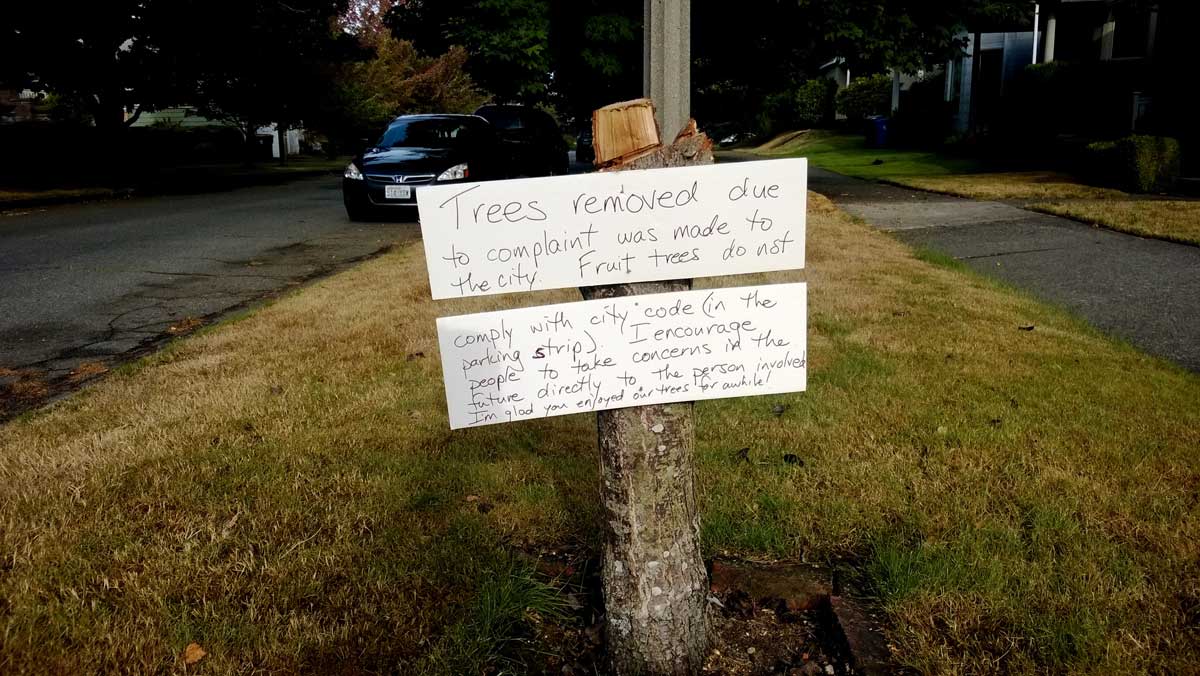 Trees removed due
to complaint was made to
the city. Fruit trees do not
comply with city code (in the
parking strip). I encourage
people to take concerns in the
future directly to the person involved
I'm glad you enjoyed our trees for awhile!